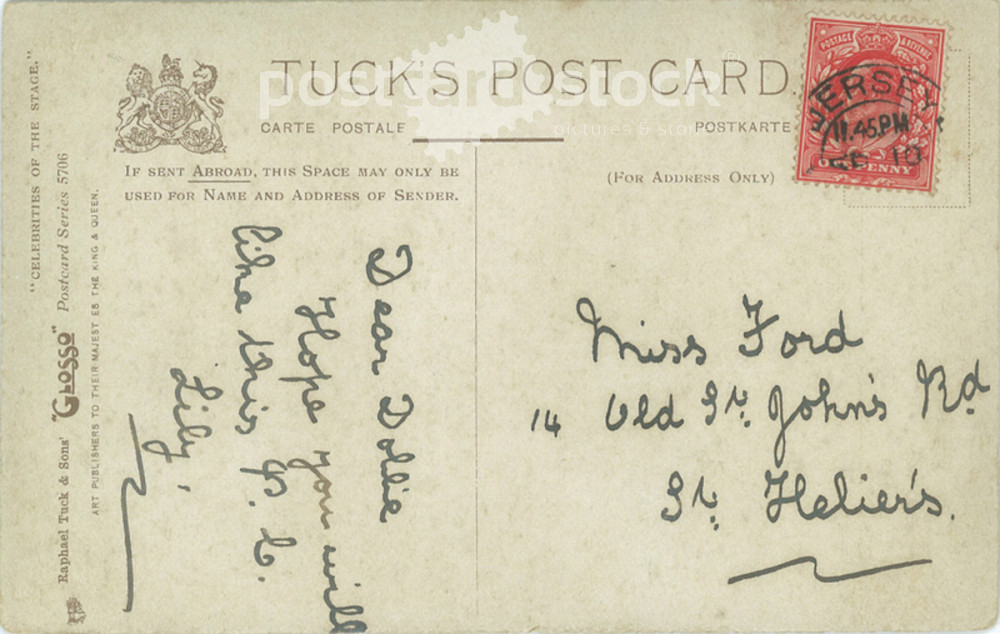 TUCK'S POST CARD.
CARTE POSTALE
POSTKARTE
postcardstock
POSTAGE & REVENUE
JERSEY
11.45PM
10
ONE PENNY
IF SENT ABROAD, THIS SPACE MAY ONLY BE
USED FOR NAME AND ADDRESS OF SENDER.
(FOR ADDRESS ONLY)
"CELEBRITIES OF THE STAGE."
Raphael Tuck & Sons' "GLOSSO" Postcard Series 5706
ART PUBLISHERS TO THEIR MAJEST ES THE KING & QUEEN.
Dear Dollie
Hope you will
like this P. C.
Lily,
Miss Ford
14 Old St. John's Rd
St. Helier's.